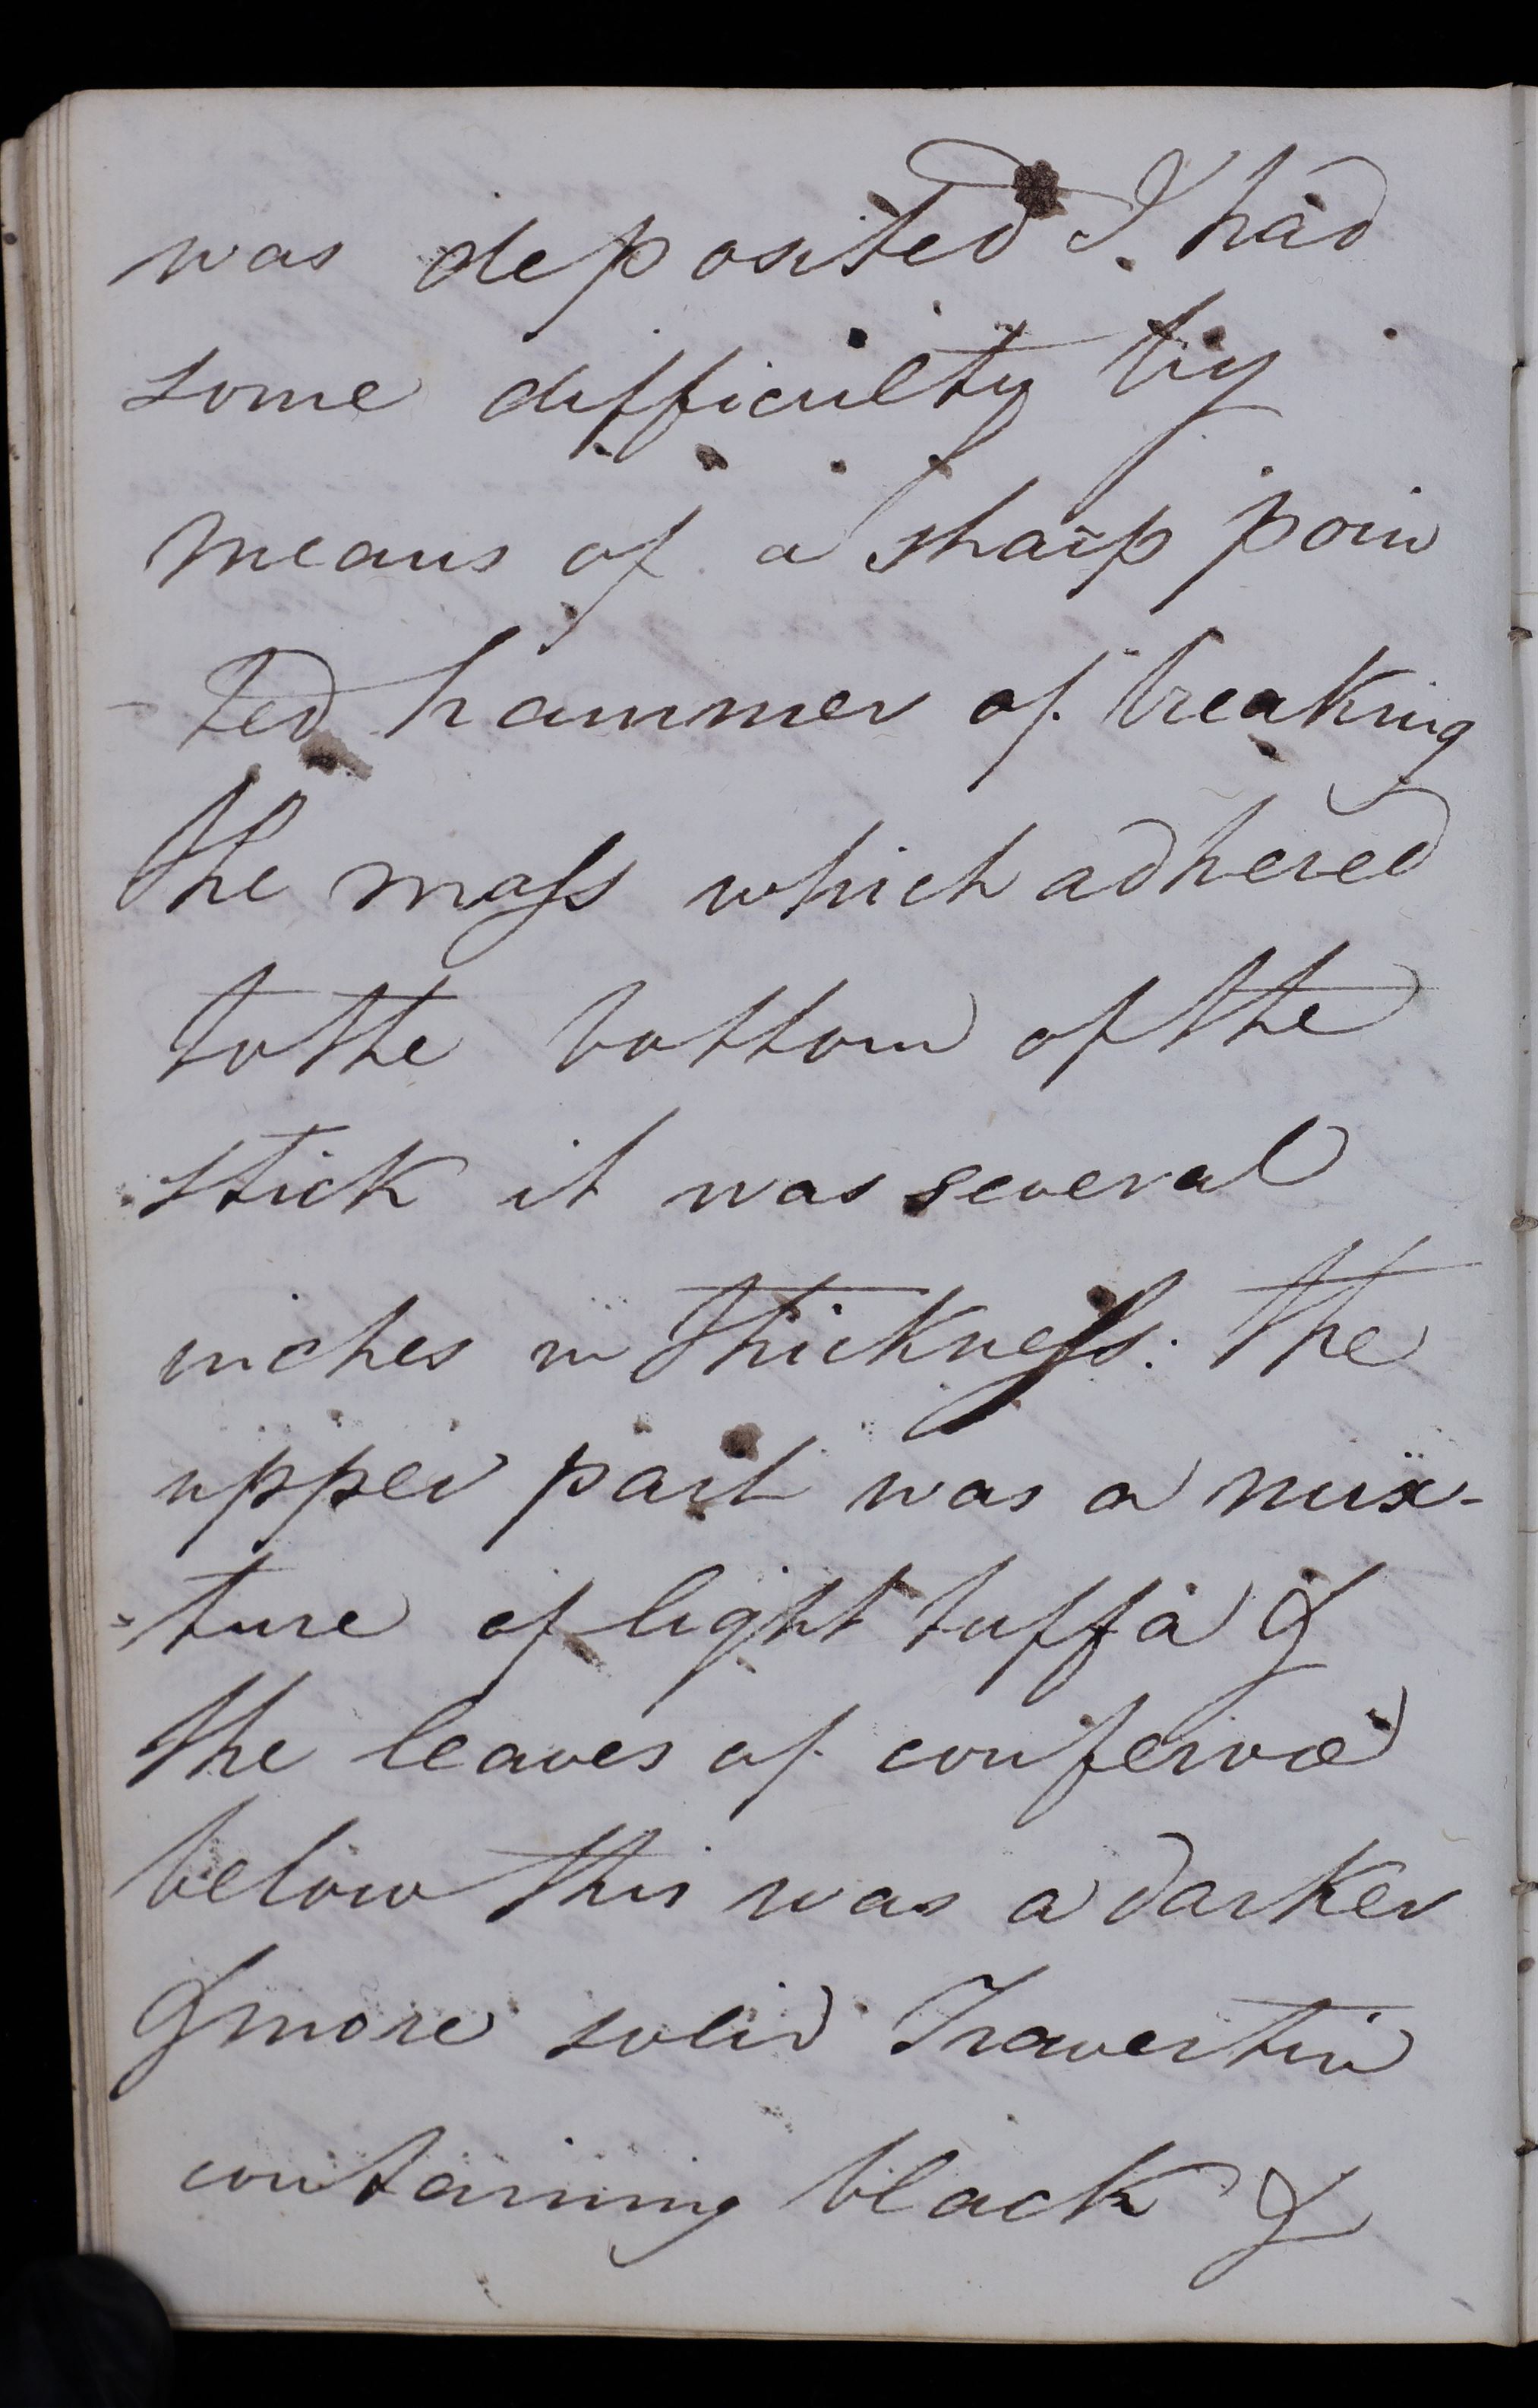 was deposited I had
some difficulty by
means of a sharp poin
-ted hammer of breaking
the mass which adhered
to the bottom of the
stick it was several
inches in thickness: the
upper part was a mix-
=ture of light tuffa &
the leaves of confervæ
below this was a darker
& more solid Travertin
containing black &